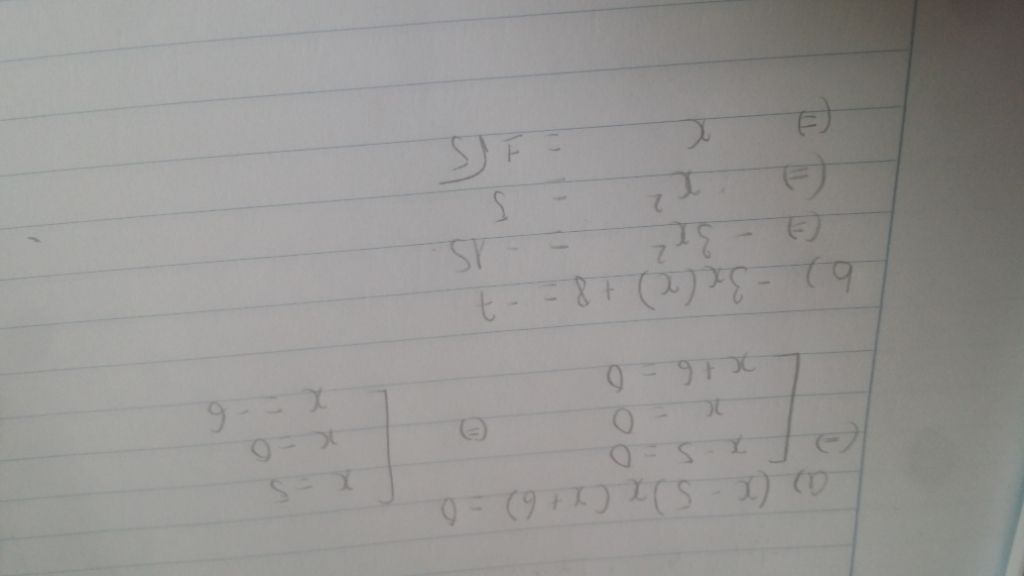 a) (x - 5)x(x+6) = 0
(=) [ x - 5 = 0 (=) [ x = 5
x = 0 x = 0
x + 6 = 0 x = -6
b) -3x(x) + 8 = -7
(=) -3x² = -15
(=) x² = 5
(=) x = ±√5